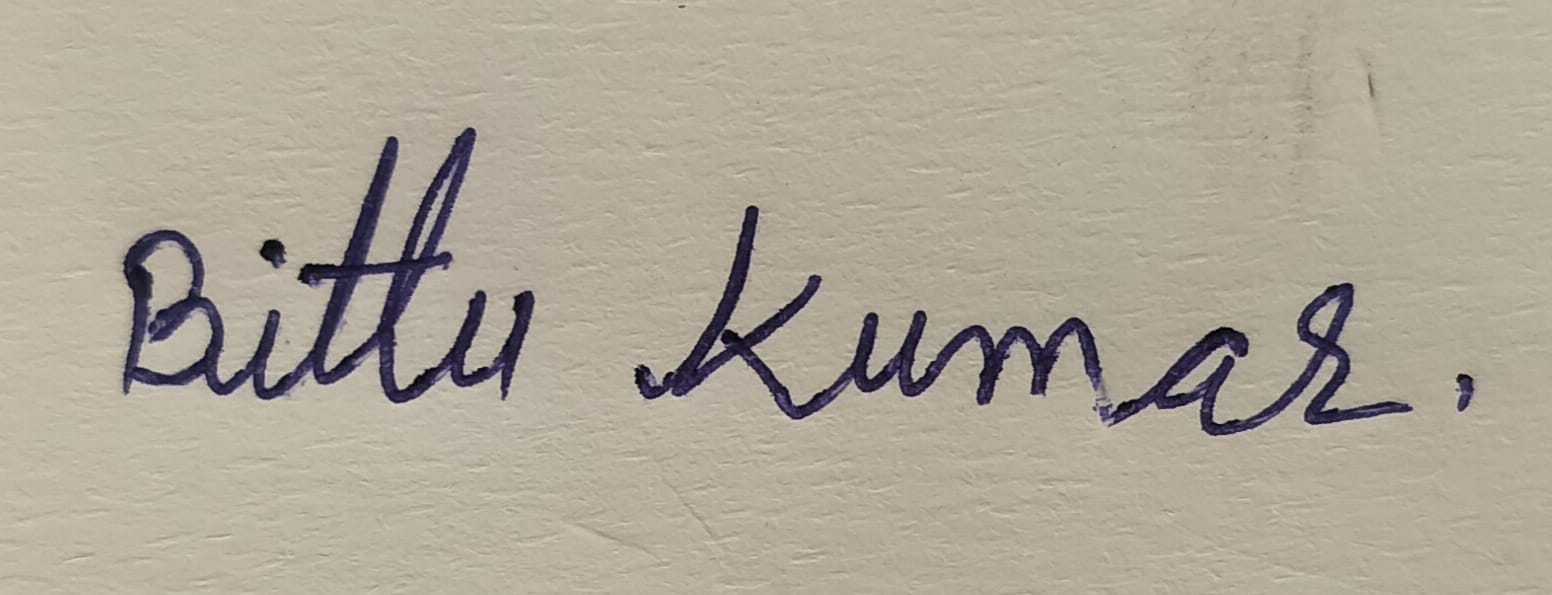 Bittu Kumar.